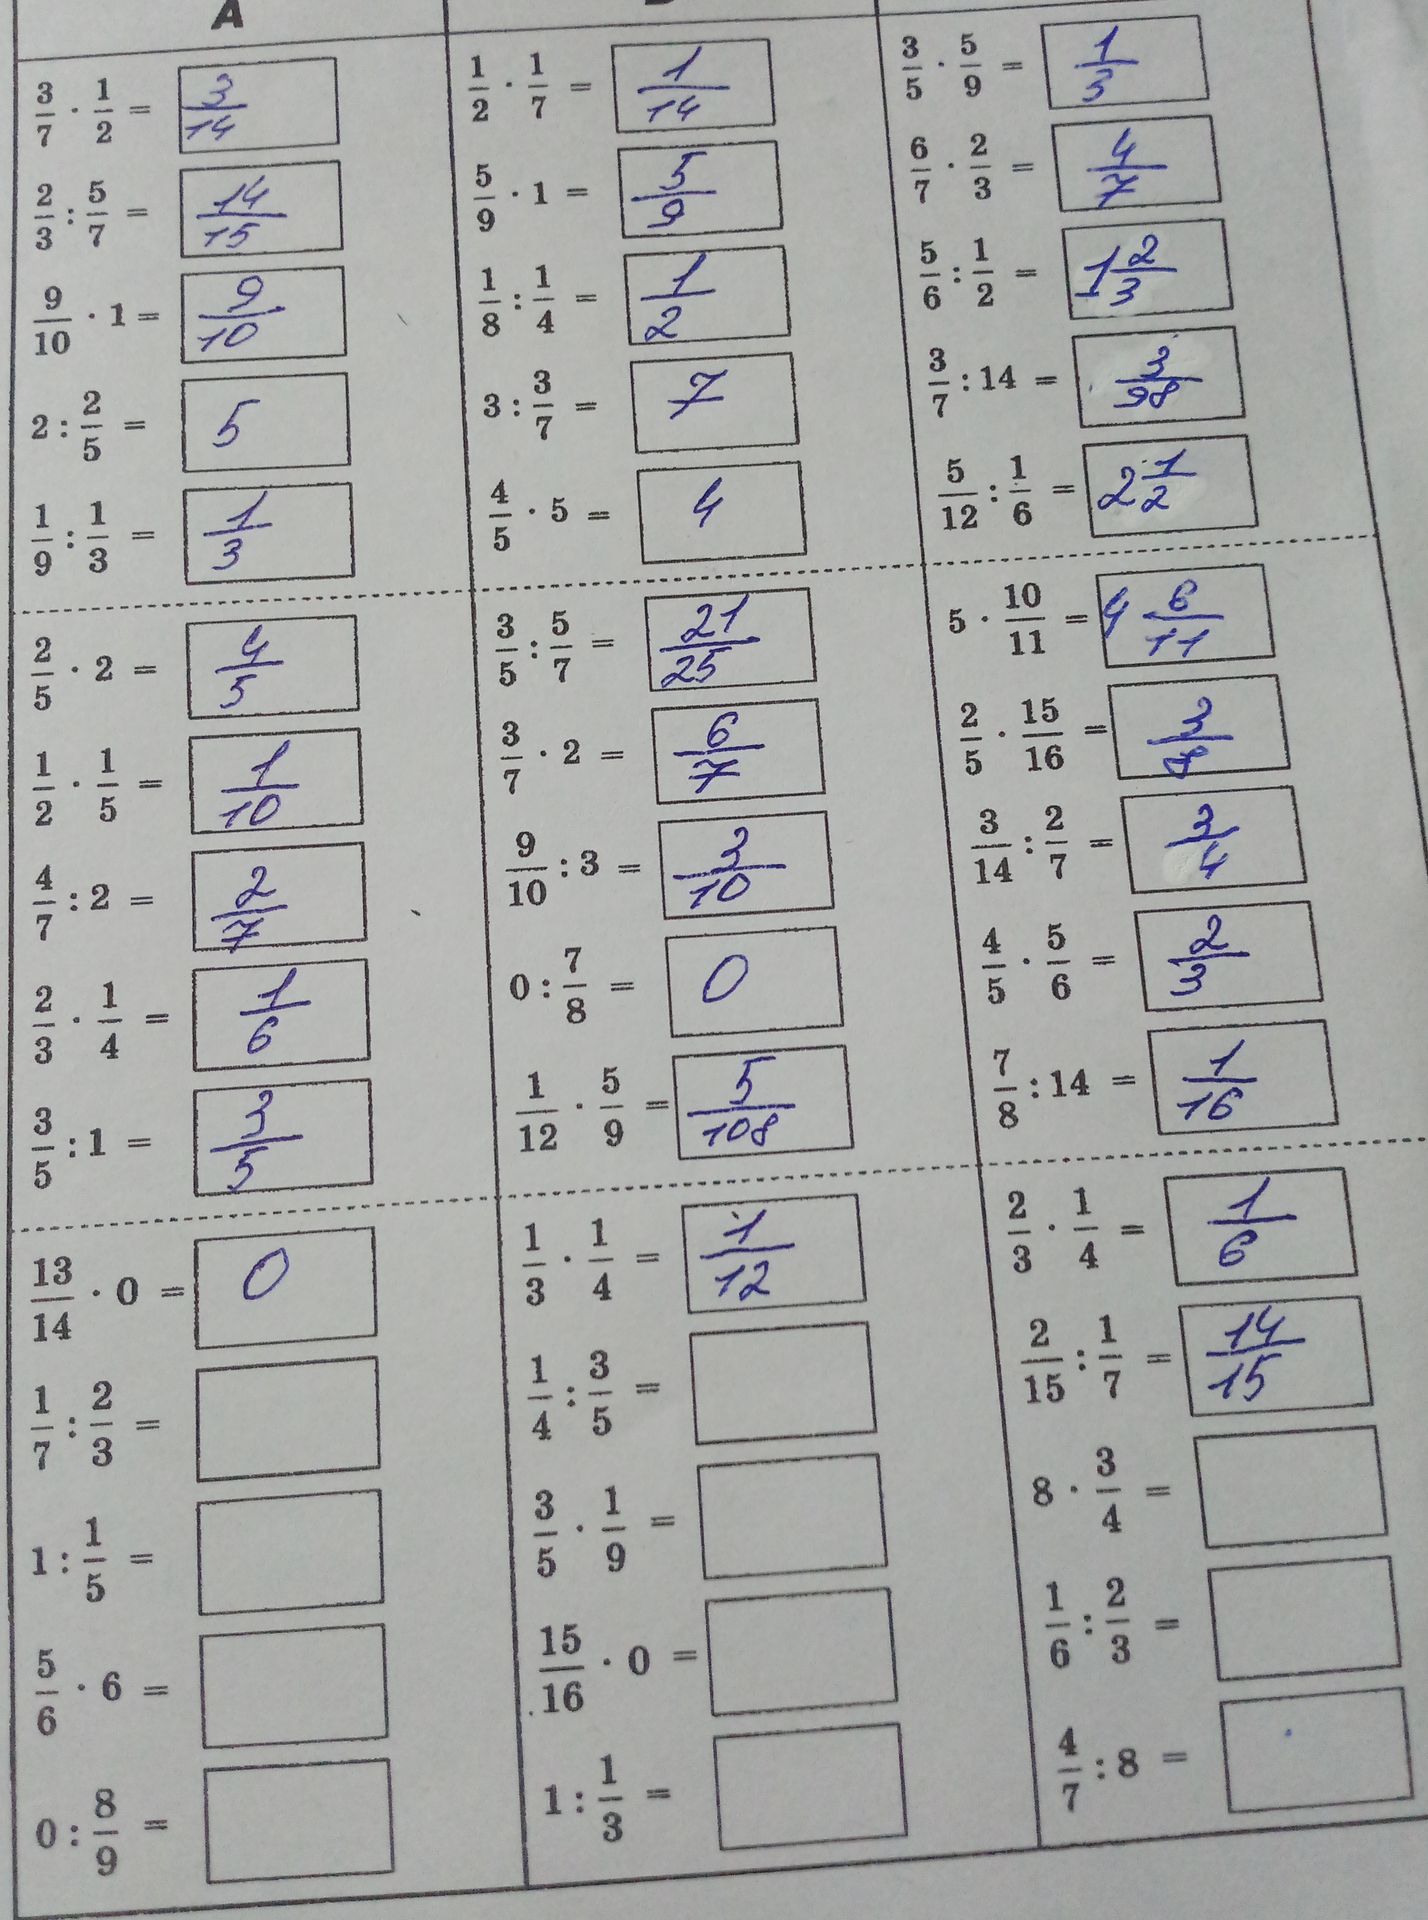 А
3/7 · 1/2 = 3/14
2/3 : 5/7 = 14/15
9/10 · 1 = 9/10
2 : 2/5 = 5
1/9 : 1/3 = 1/3
2/5 · 2 = 4/5
1/2 · 1/5 = 1/10
4/7 : 2 = 2/7
2/3 · 1/4 = 1/6
3/5 : 1 = 3/5
13/14 · 0 = 0
1/7 : 2/3 =
1 : 1/5 =
5/6 · 6 =
0 : 8/9 =
1/2 · 1/7 = 1/14
5/9 · 1 = 5/9
1/8 : 1/4 = 1/2
3 : 3/7 = 7
4/5 · 5 = 4
3/5 : 5/7 = 21/25
3/7 · 2 = 6/7
9/10 : 3 = 3/10
0 : 7/8 = 0
1/12 · 5/9 = 5/108
1/3 · 1/4 = 1/12
1/4 : 3/5 =
3/5 · 1/9 =
15/16 · 0 =
1 : 1/3 =
3/5 · 5/9 = 1/3
6/7 · 2/3 = 4/7
5/6 : 1/2 = 1 2/3
3/7 : 14 = 3/98
5/12 : 1/6 = 2 1/2
5 · 10/11 = 4 6/11
2/5 · 15/16 = 3/8
3/14 : 2/7 = 3/4
4/5 · 5/6 = 2/3
7/8 : 14 = 1/16
2/3 · 1/4 = 1/6
2/15 : 1/7 = 14/15
8 · 3/4 =
1/6 : 2/3 =
4/7 : 8 =